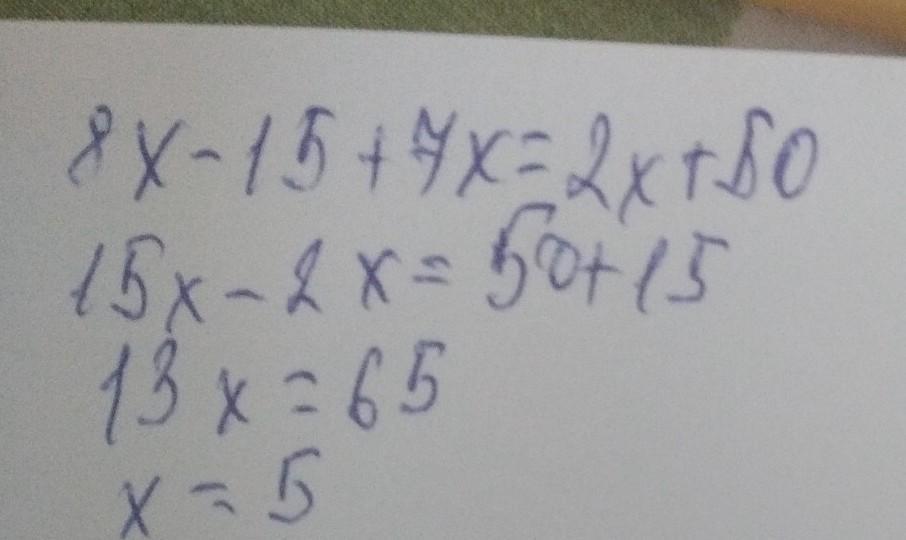 8x-15+7x=2x+50
15x-2x=50+15
13x=65
x=5